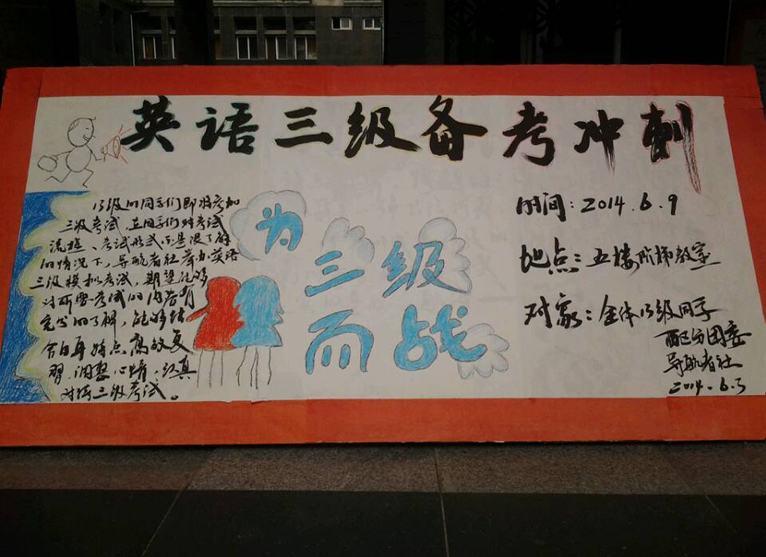 英语三级备考冲刺
13级的同学们即将参加
三级考试,在同学们对考试
流程、考试形式不是很了解
的情况下,导航者社举办英语
三级模拟考试,期望能够
对所要考试的内容有
充分的了解,能够结
合自身特点高效复
习,调整心情,认真
对待三级考试。
为
三级
而战
时间:2014.6.9
地点:五楼阶梯教室
对象:全体13级同学
团委
导航者社
2014.6.3